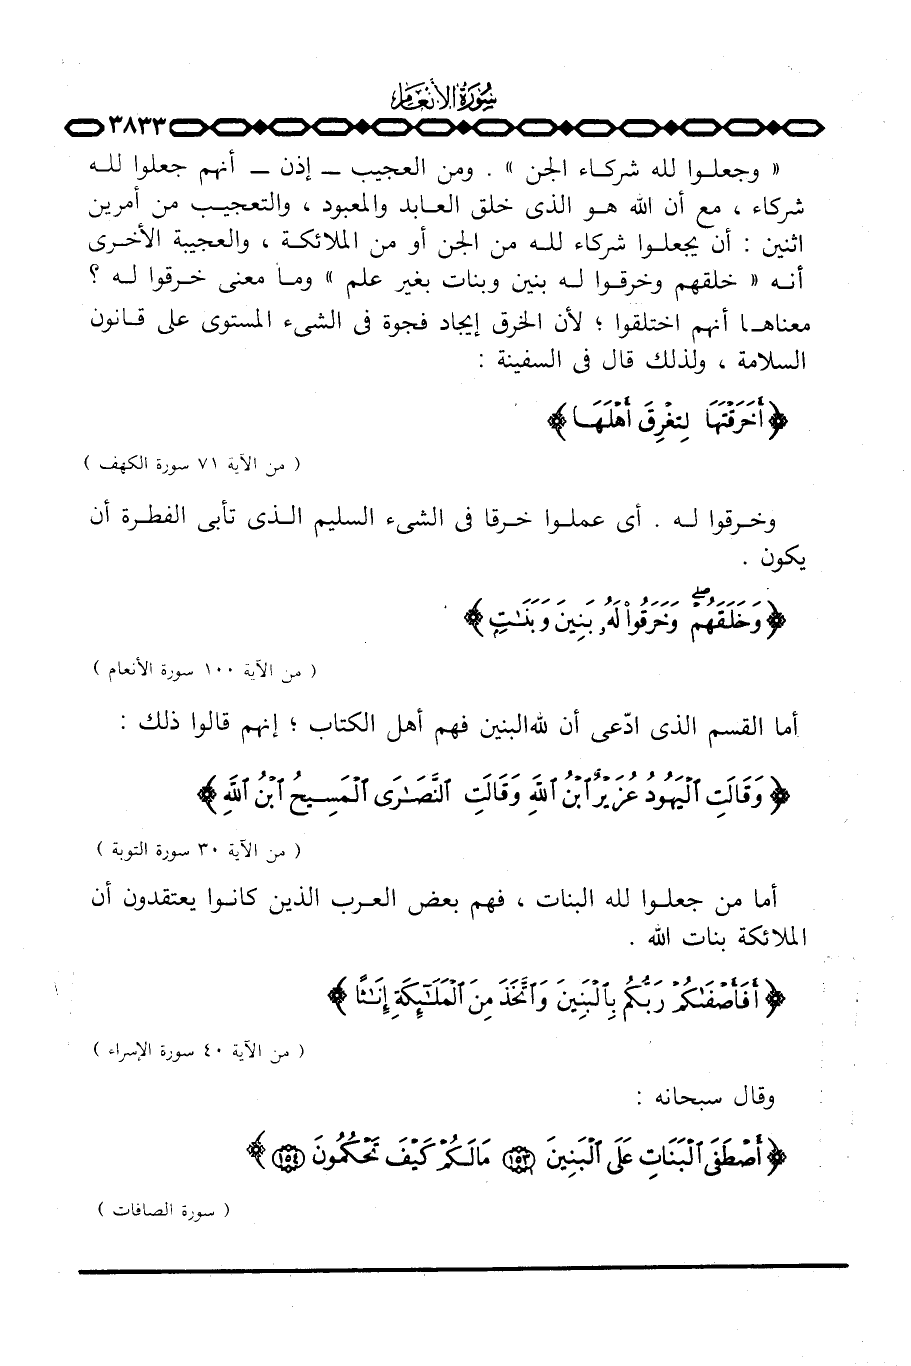 سورة الأنعام
٣٨٣٣
« وجعلوا لله شركاء الجن » . ومن العجيب ــ إذن ــ أنهم جعلوا لله
شركاء ، مع أن الله هو الذى خلق العابد والمعبود ، والتعجيب من أمرين
اثنين : أن يجعلوا شركاء لله من الجن أو من الملائكة ، والعجيبة الأخرى
أنه « خلقهم وخرقوا له بنين وبنات بغير علم » وما معنى خرقوا له ؟
معناها أنهم اختلقوا ؛ لأن الخرق إيجاد فجوة فى الشىء المستوى على قانون
السلامة ، ولذلك قال فى السفينة :
﴿ أَخَرَقْتَهَا لِتُغْرِقَ أَهْلَهَا ﴾
( من الآية ٧١ سورة الكهف )
وخرقوا له . أى عملوا خرقا فى الشىء السليم الذى تأبى الفطرة أن
يكون .
﴿ وَخَلَقَهُمْ ۖ وَخَرَقُوا۟ لَهُۥ بَنِينَ وَبَنَـٰتٍۭ ﴾
( من الآية ١٠٠ سورة الأنعام )
أما القسم الذى ادّعى أن لله البنين فهم أهل الكتاب ؛ إنهم قالوا ذلك :
﴿ وَقَالَتِ ٱلْيَهُودُ عُزَيْرٌ ٱبْنُ ٱللَّهِ وَقَالَتِ ٱلنَّصَـٰرَى ٱلْمَسِيحُ ٱبْنُ ٱللَّهِ ﴾
( من الآية ٣٠ سورة التوبة )
أما من جعلوا لله البنات ، فهم بعض العرب الذين كانوا يعتقدون أن
الملائكة بنات الله .
﴿ أَفَأَصْفَىٰكُمْ رَبُّكُم بِٱلْبَنِينَ وَٱتَّخَذَ مِنَ ٱلْمَلَـٰٓئِكَةِ إِنَـٰثًا ﴾
( من الآية ٤٠ سورة الإسراء )
وقال سبحانه :
﴿ أَصْطَفَى ٱلْبَنَاتِ عَلَى ٱلْبَنِينَ ١٥٣ مَا لَكُمْ كَيْفَ تَحْكُمُونَ ١٥٤ ﴾
( سورة الصافات )